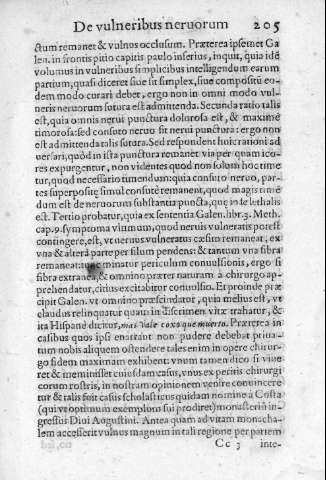 De vulneribus neruorum 205
ctum remanet & vulnus occlusum. Præterea ipsemet Ga
len. in frontispitio capitis paulo inferius, inquit, quia idē
volumus in vulneribus simplicibus intelligendum earum
partium, quasi diceret siue sit simplex, siue compositū eo-
dem modo curari debet, ergo non in omni modo vul-
neris neruorum sutura est admittenda. Secunda ratio talis
est, quia omnis nerui punctura dolorosa est, & maximè
timorosa: sed consuto neruo sit nerui punctura: ergo non
est admittenda talis sutura. Sed respondent huic rationi ad
uersarij, quòd in ista punctura remanet via per quam ico-
res expurgentur, non videntes quòd non solum hoc time
tur, quod necessario timendum: quia consuto neruo, par-
tes superpositę simul consutę remanent, quod magis timē
dum est de neruorum substantia puncta, que in se lethalis
est. Tertio probatur, quia ex sententia Galen. libr. 3. Meth.
cap. 9. symptoma vltimum, quod neruis vulneratis potest
contingere, est, vt neruus vulneratus cæsim remaneat, ex
vna & altera parte per filum pendens: & tantum vna fibra
remaneat: tunc minatur periculum conuulsionis, ergo si
fibra extranea, & omnino præter naturam à chirurgo ap-
prehendatur, citius excitabitur conuulsio. Et proinde præ
cipit Galen. vt omnino præscindatur, quia melius est, vt
claudus relinquatur quam in discrimen vitæ trahatur, &
ita Hispanè dicitur, mas vale coxo que muerto. Præterea in
casibus quos ipsi enarrant non pudere debebat priua-
tum nobis aliquem ostendere tales enim in opere chirur-
go fidem maximam exhibent: vnum tamen dico si viue
ret & meminisset cuiusdam casus, vnus ex peritis chirurgi
corum rostris, in nostram opinionem venire conuincere
tur & talis fuit casus scholasticus quidam nomine à Costa
(qui vt optimum exemplum sui prodiret) monasterii in-
gressus Diui Augustini. Antea quam ad vitam monacha-
lem accesserit vulnus magnum in tali regione per partem
Cc 3 inte-